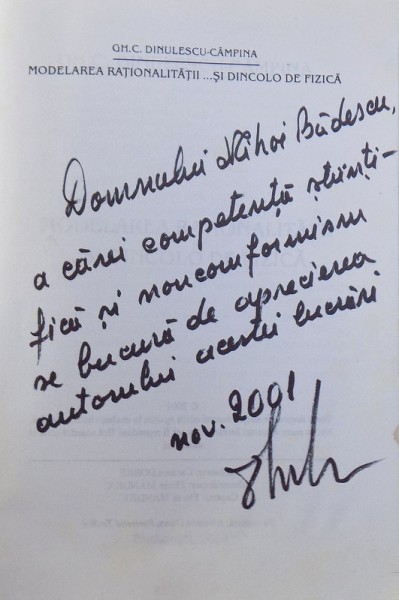 GH.C. DINULESCU-CÂMPINA
MODELAREA RAȚIONALITĂȚII ...ȘI DINCOLO DE FIZICĂ
Domnului Mihai Bădescu,
a cărei competență științi-
fică și nonconformism
se bucură de aprecierea
autorului acestei lucrări
nov. 2001